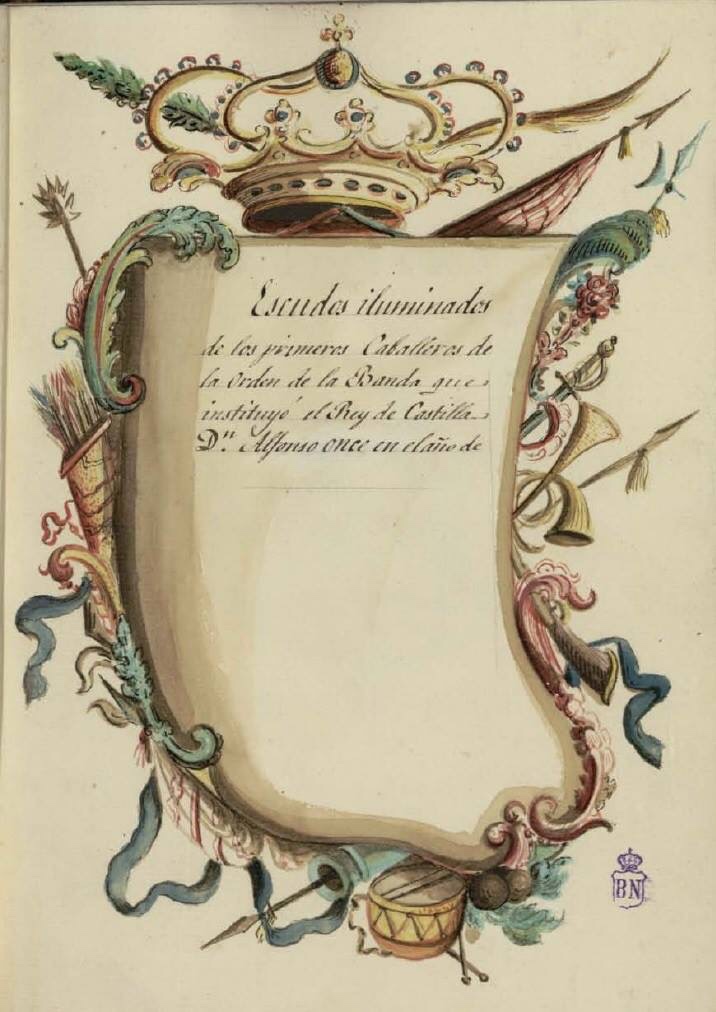 Escudos iluminados
de los primeros Caballeros de
la Orden de la Banda que
instituyó el Rey de Castilla
Dn. Alfonso once en el año de
BN